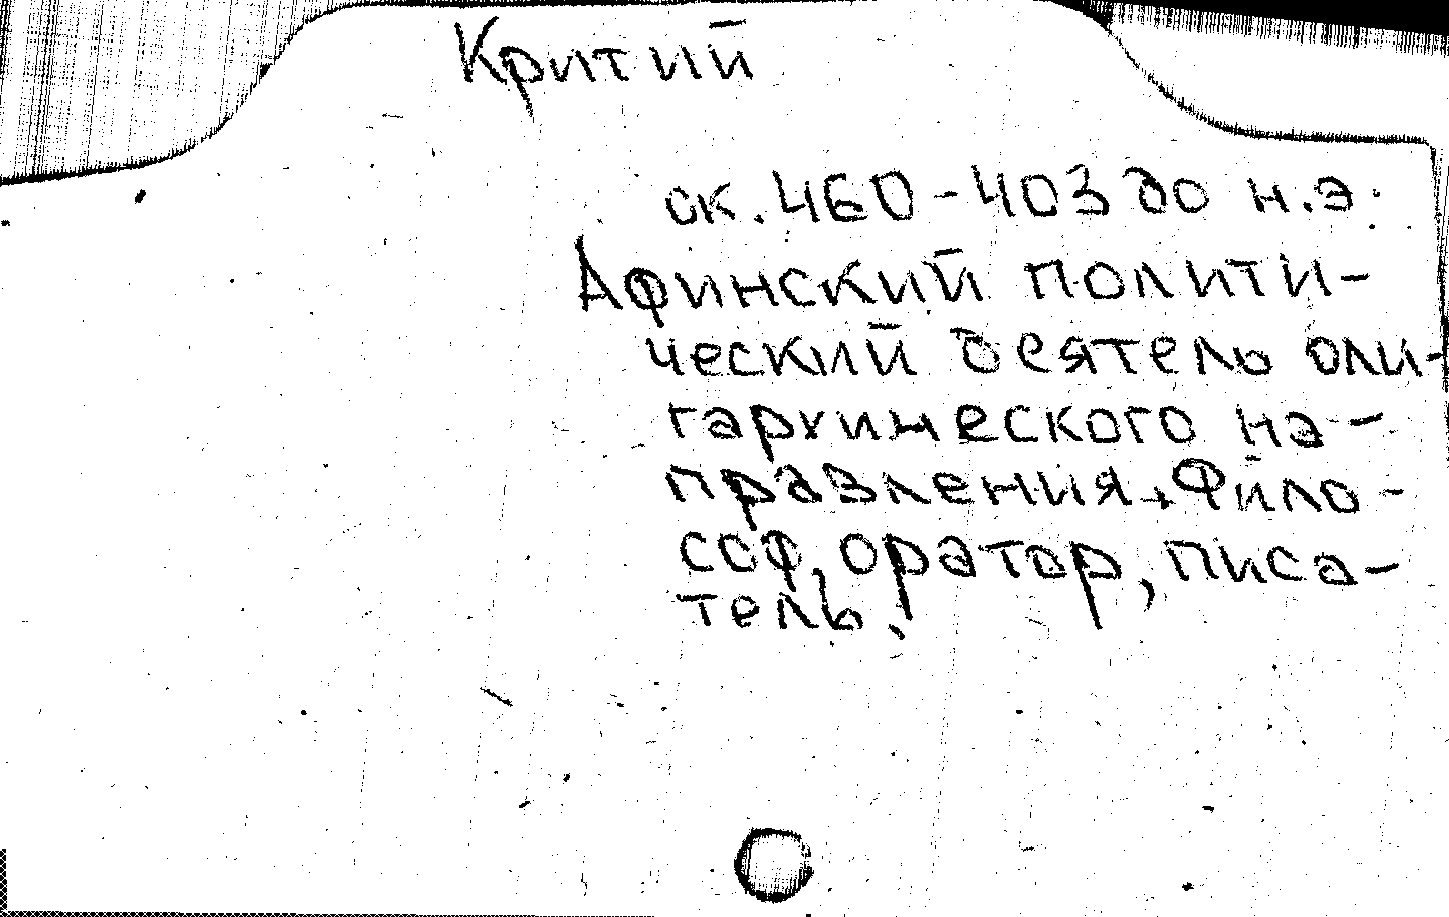 Критий
ок. 460-403 до н.э.
Афинский полити-
ческий деятель оли-
гархического на-
правления. Фило-
соф, оратор, писа-
тель.